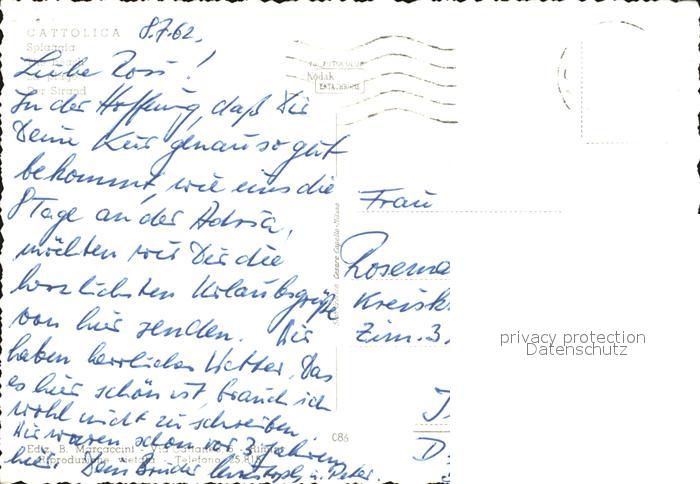 CATTOLICA 8.7.62.
Spiaggia
Der Strand
Liebe Rosi!
In der Hoffnung, daß Dir
Deine Kur genauso gut
bekommt, wie uns die
8 Tage an der Adria,
möchten wir Dir die
herzlichsten Urlaubsgrüße
von hier senden. Wir
haben herrliches Wetter. Das
es hier schön ist, brauch ich
wohl nicht zu schreiben.
Wir waren schon vor 3 Jahren
hier. Dein Bruder Christoph u. Peter.
Kodak
Frau
Rosema
Kreisk
Zim. 3,
privacy protection
Datenschutz
D
086
Ediz. B. Marcaccini - Via Cattaneo, 6 - Rimini
Riproduzione vietata - Telefono